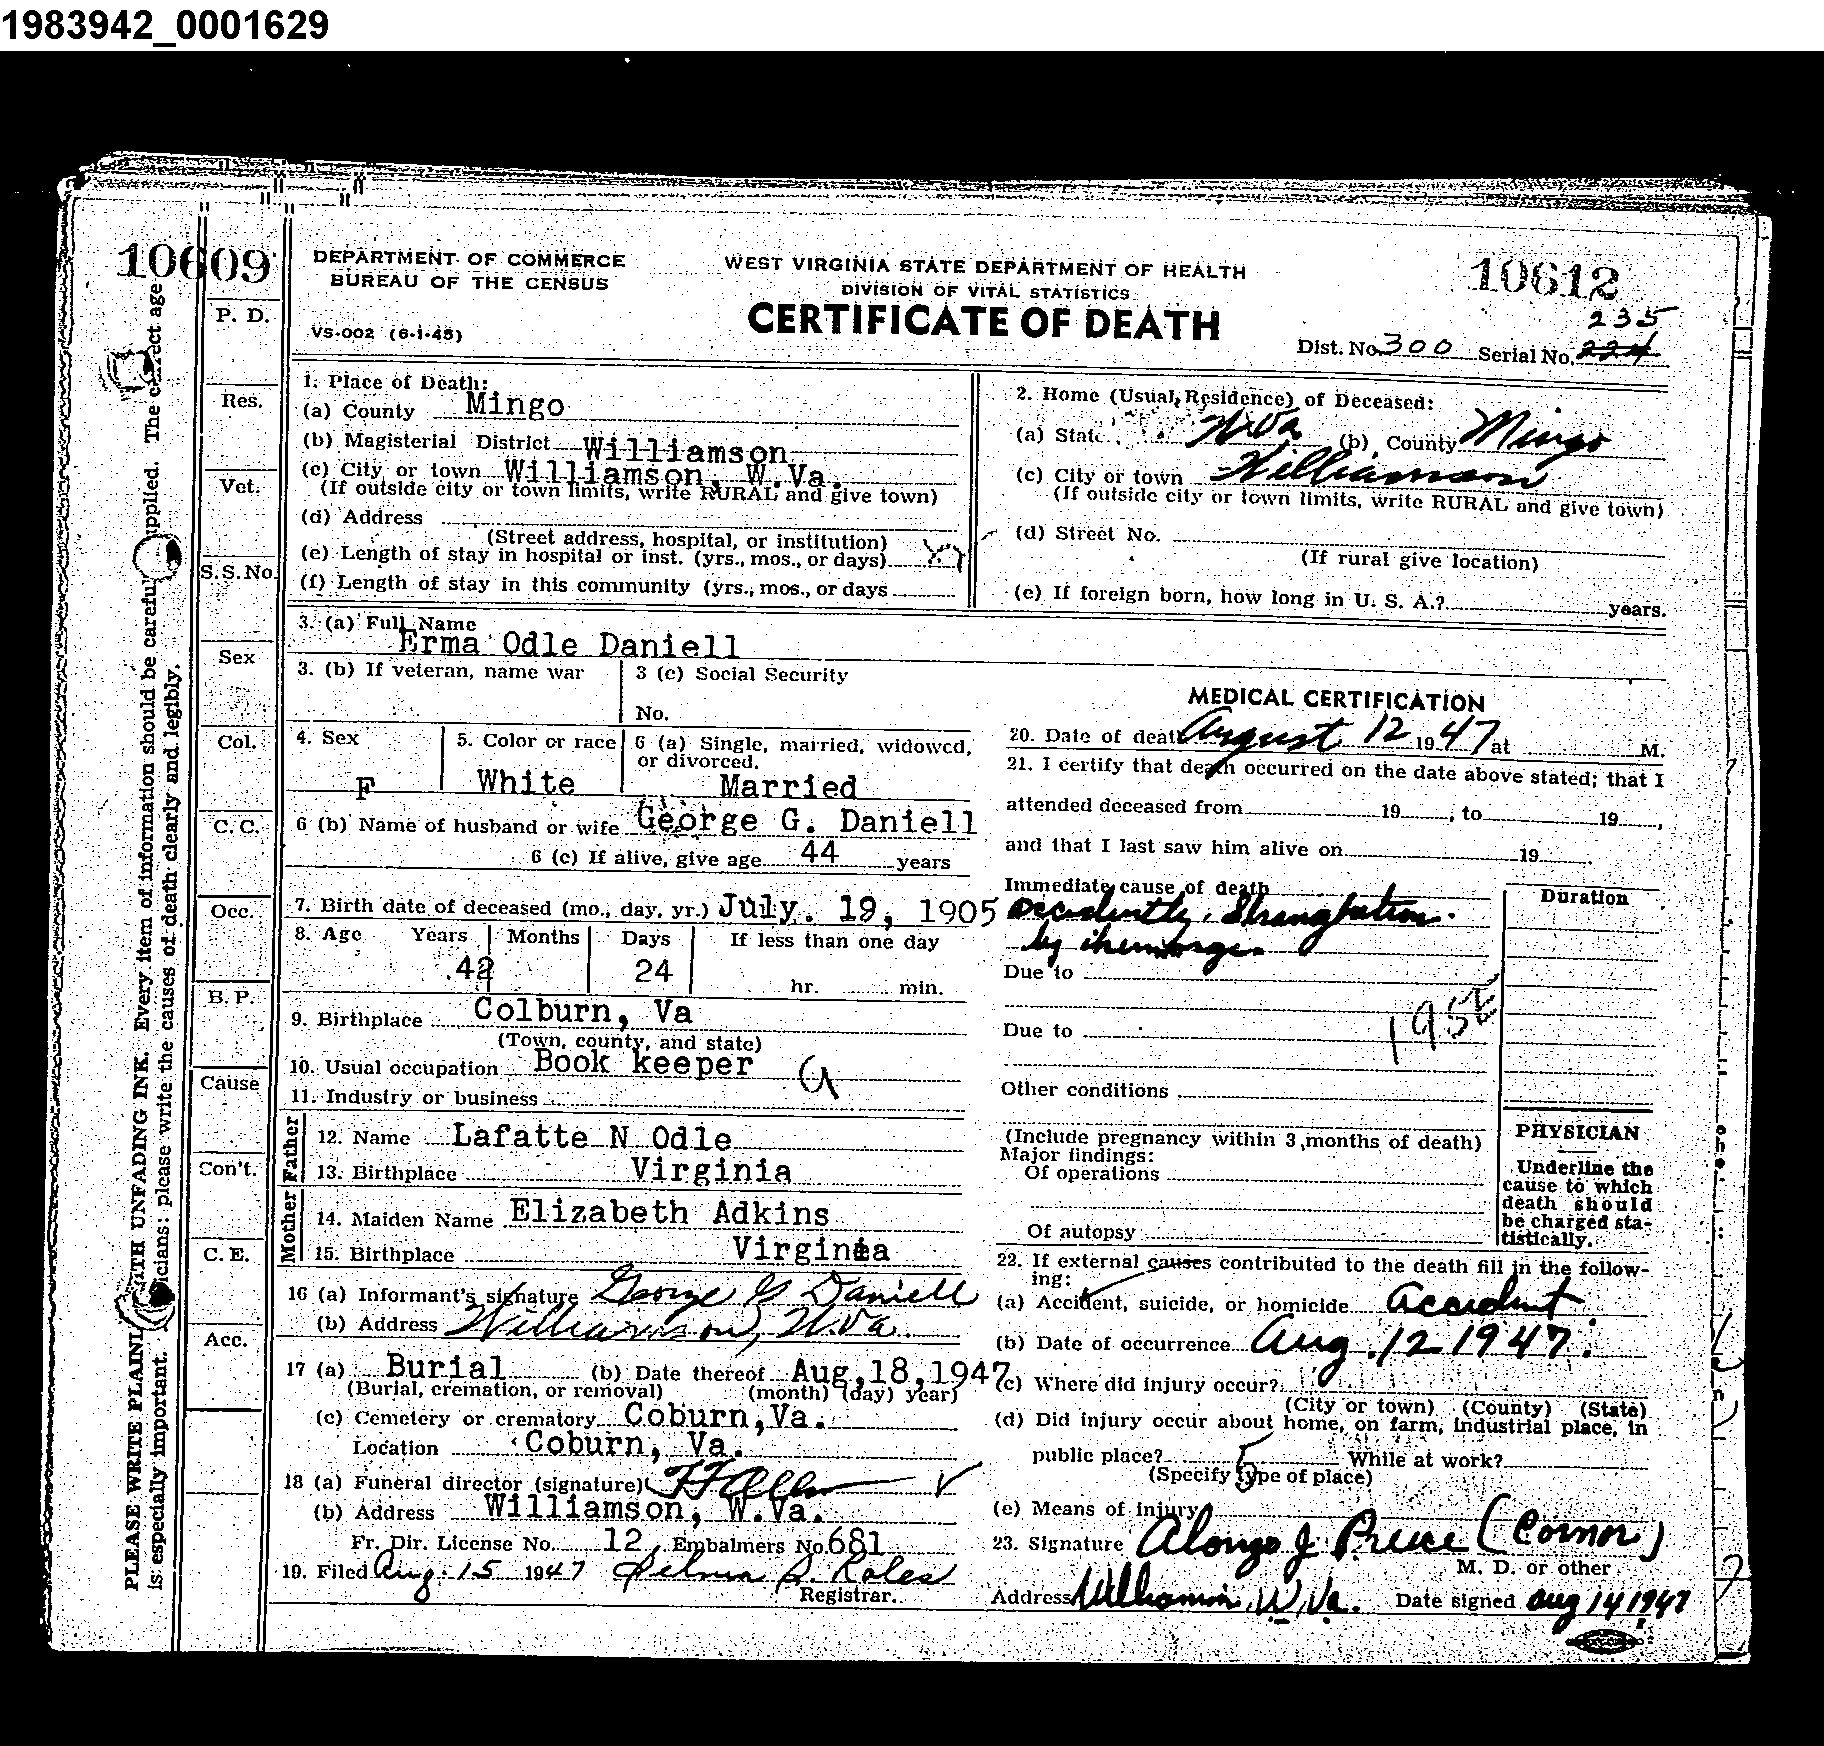 1983942_0001629
10609
DEPARTMENT OF COMMERCE
BUREAU OF THE CENSUS
VS-002 (6-1-45)
WEST VIRGINIA STATE DEPARTMENT OF HEALTH
DIVISION OF VITAL STATISTICS
CERTIFICATE OF DEATH
10612
235
Dist. No. 300 Serial No. 224
PLEASE WRITE PLAINLY WITH UNFADING INK. Every item of information should be carefully supplied. The correct age
is especially important. Physicians: please write the causes of death clearly and legibly.
P. D.
Res.
Vet.
S.S. No.
Sex
Col.
C. C.
Occ.
B. P.
Cause
Con't.
C. E.
Acc.
1. Place of Death:
(a) County Mingo
(b) Magisterial District Williamson
(c) City or town Williamson, W.Va.
(If outside city or town limits, write RURAL and give town)
(d) Address
(Street address, hospital, or institution)
(e) Length of stay in hospital or inst. (yrs., mos., or days)
(f) Length of stay in this community (yrs., mos., or days
2. Home (Usual Residence) of Deceased:
(a) State W.Va (b) County Mingo
(c) City or town Williamson
(If outside city or town limits, write RURAL and give town)
(d) Street No.
(If rural give location)
(e) If foreign born, how long in U. S. A.? years.
3. (a) Full Name
Erma Odle Daniell
3. (b) If veteran, name war
3 (c) Social Security
No.
4. Sex
F
5. Color or race
White
6 (a) Single, married, widowed,
or divorced.
Married
6 (b) Name of husband or wife George G. Daniell
6 (c) If alive, give age 44 years
7. Birth date of deceased (mo., day, yr.) July. 19, 1905
8. Age Years Months Days If less than one day
42 24 hr. min.
9. Birthplace Colburn, Va
(Town, county, and state)
10. Usual occupation Book keeper
11. Industry or business
Father
12. Name Lafatte N Odle
13. Birthplace Virginia
Mother
14. Maiden Name Elizabeth Adkins
15. Birthplace Virginia
16 (a) Informant's signature George G Daniell
(b) Address Williamson, W.Va.
17 (a) Burial (b) Date thereof Aug,18,1947
(Burial, cremation, or removal) (month) (day) year)
(c) Cemetery or crematory Coburn,Va.
Location Coburn, Va.
18 (a) Funeral director (signature)
(b) Address Williamson, W.Va.
Fr. Dir. License No. 12 Embalmers No. 681
19. Filed Aug. 15 1947
Registrar.
MEDICAL CERTIFICATION
20. Date of death August 12 1947 at M.
21. I certify that death occurred on the date above stated; that I
attended deceased from 19 , to 19 ,
and that I last saw him alive on 19 .
Immediate cause of death
Duration
by
Due to
1952
Due to
Other conditions
(Include pregnancy within 3 months of death)
Major findings:
Of operations
Of autopsy
PHYSICIAN
Underline the
cause to which
death should
be charged sta-
tistically.
22. If external causes contributed to the death fill in the follow-
ing:
(a) Accident, suicide, or homicide Accident
(b) Date of occurrence Aug. 12 1947.
(c) Where did injury occur?
(City or town) (County) (State)
(d) Did injury occur about home, on farm, industrial place, in
public place? 5 While at work?
(Specify type of place)
(e) Means of injury
23. Signature Alonzo J Preece (Cornor)
M. D. or other
Address Williamson, W. Va. Date signed Aug 14 1947